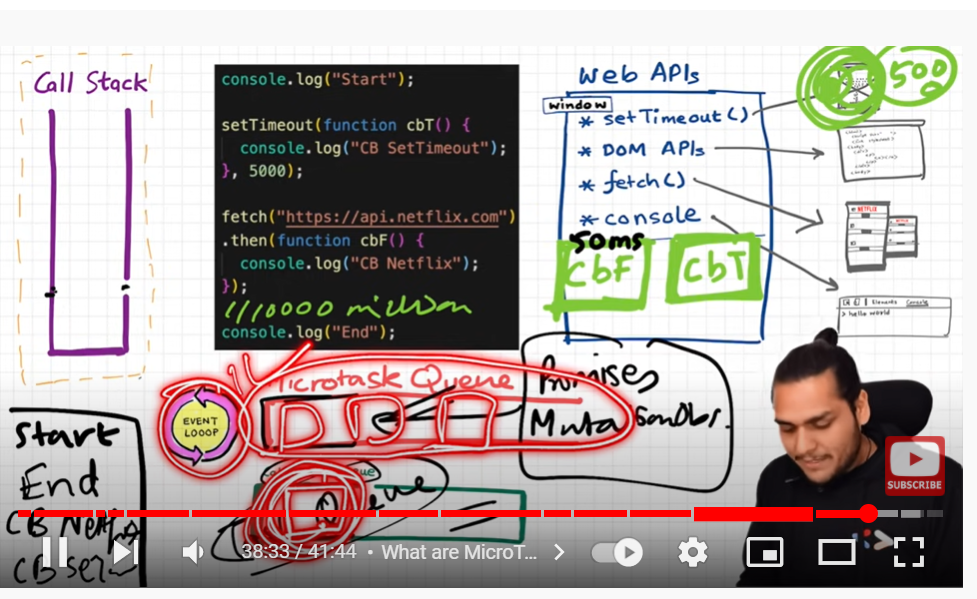 Call Stack
console.log("Start");
setTimeout(function cbT() {
console.log("CB SetTimeout");
}, 5000);
fetch("https://api.netflix.com")
.then(function cbF() {
console.log("CB Netflix");
});
10000 million
console.log("End");
Web APIs
window
* setTimeout()
* DOM APIs
* fetch()
* console
50ms
CbF
CbT
500
NETFLIX
Elements Console
> hello world
Microtask Queue
EVENT
LOOOP
Promises
Muta
Queue
Start
End
CB
CB
SUBSCRIBE
38:33 / 41:44 • What are MicroT... >